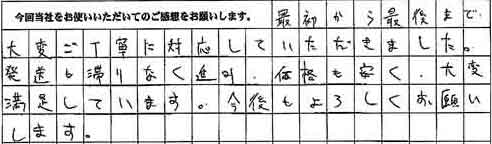 今回当社をお使いいただいてのご感想をお願いします。 最初から最後まで
大変ご丁寧に対応していただきました。
発送も滞りなく進み、価格も安く、大変
満足しています。今後もよろしくお願い
します。